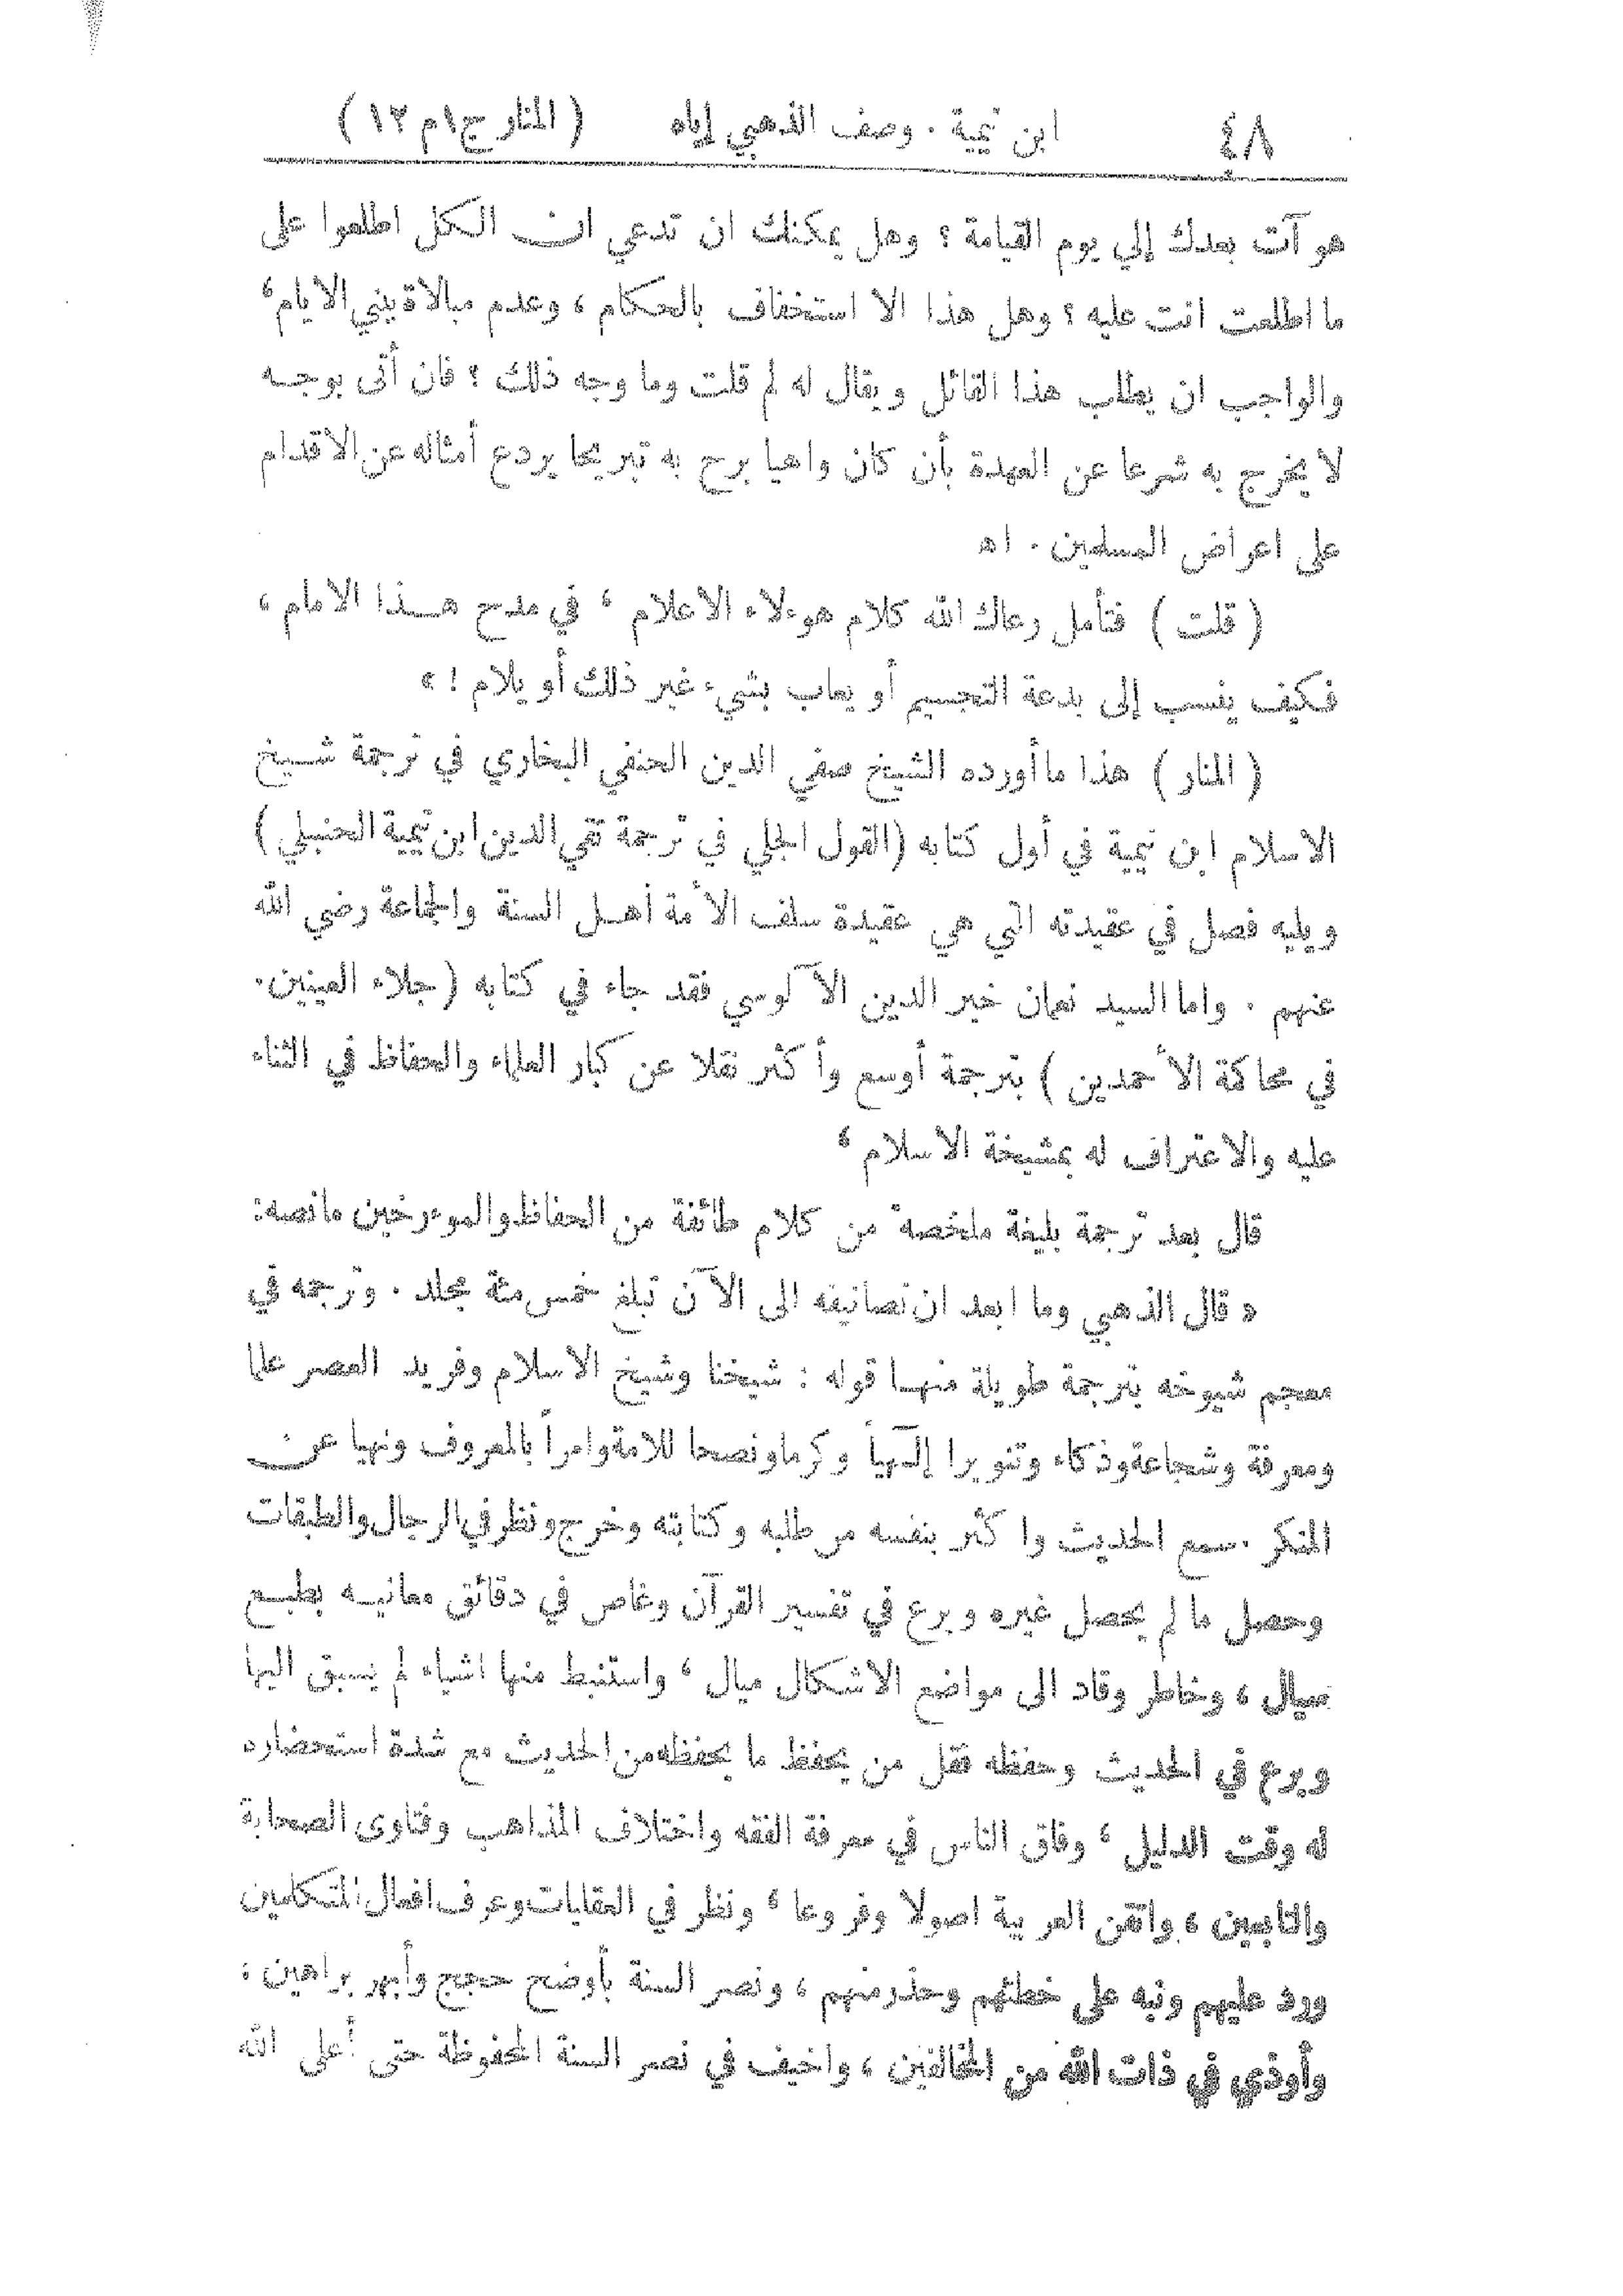 ٤٨ ابن تيمية . وصف الذهبي إياه ( المنار ج١ م ١٢ )
هو آت بعدك إلي يوم القيامة ؟ وهل يمكنك ان تدعي ان الكل اطلعوا على
ما اطلعت انت عليه ؟ وهل هذا الا استخفاف بالحكام ، وعدم مبالاة ببني الايام ،
والواجب ان يطلب هذا القائل ويقال له لم قلت وما وجه ذلك ؟ فان أتى بوجه
لا يخرج به شرعا عن العهدة بأن كان واهيا برح به تبريحا يردع أمثاله عن الاقدام
على اعراض المسلمين . اه
( قلت ) فتأمل رعاك الله كلام هوءلاء الاعلام ، في مدح هذا الامام ،
فكيف ينسب إلى بدعة التجسيم أو يعاب بشيء غير ذلك أو يلام ! »
( المنار ) هذا ما أورده الشيخ صفي الدين الحنفي البخاري في ترجمة شيخ
الاسلام ابن تيمية في أول كتابه (القول الجلي في ترجمة تقي الدين ابن تيمية الحنبلي )
ويليه فصل في عقيدته التي هي عقيدة سلف الأمة أهل السنة والجماعة رضي الله
عنهم . واما السيد نعمان خير الدين الآلوسي فقد جاء في كتابه ( جلاء العينين.
في محاكمة الأحمدين ) بترجمة أوسع وأكثر نقلا عن كبار العلماء والحفاظ في الثناء
عليه والاعتراف له بمشيخة الاسلام ،
قال بعد ترجمة بليغة ملخصة من كلام طائفة من الحفاظ والموءرخين ما نصه:
« قال الذهبي وما ابعد ان تصانيفه الى الآن تبلغ خمس مئة مجلد . وترجمه في
معجم شيوخه بترجمة طويلة منها قوله : شيخنا وشيخ الاسلام وفريد العصر علما
ومعرفة وشجاعة وذكاء وتنويرا إلهياً وكرما ونصحا للامة وامراً بالمعروف ونهيا عن
المنكر . سمع الحديث واكثر بنفسه من طلبه وكتابته وخرج ونظر في الرجال والطبقات
وحصل ما لم يحصل غيره وبرع في تفسير القرآن وغاص في دقائق معانيه بطبع
سيال ، وخاطر وقاد الى مواضع الاشكال ميال ، واستنبط منها اشياء لم يسبق اليها
وبرع في الحديث وحفظه فقل من يحفظ ما يحفظه من الحديث مع شدة استحضاره
له وقت الدليل ، وفاق الناس في معرفة الفقه واختلاف المذاهب وفتاوى الصحابة
والتابعين ، واتقن العربية اصولا وفروعا ، ونظر في العقليات وعرف افعال المتكلمين
ورد عليهم ونبه على خطئهم وحذر منهم ، ونصر السنة بأوضح حجج وأبهر براهين ،
وأوذي في ذات الله من المخالفين ، واخيف في نصر السنة المحفوظة حتى أعلى الله